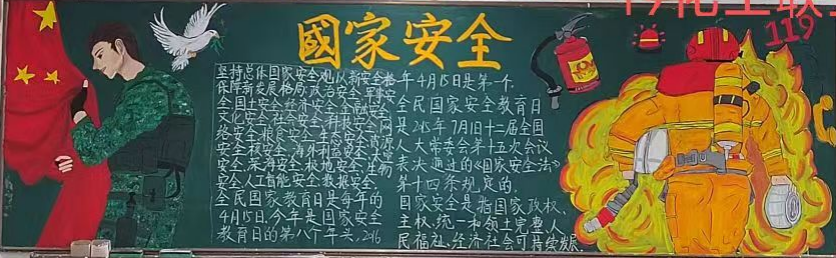 國家安全
119
坚持总体国家安全观,以新安全格
保障新发展格局,政治安全,军事安
全国土安全经济安全金融安全
文化安全社会安全科技安全网
络安全粮食安全生态安全资源
安全核安全海外利益安全太空
安全深海安全极地安全生物
安全人工智能安全数据安全.
全民国家教育日是每年的
4月15日,今年是国家安全
教育日的第八个年头,2016
年4月15日是第一个
全民国家安全教育日
是2015年7月1日十二届全国
人大常委会第十五次会议
表决通过的《国家安全法》
第十四条规定的.
国家安全是指国家政权、
主权、统一和领土完整、人
民福祉、经济社会可持续发展.